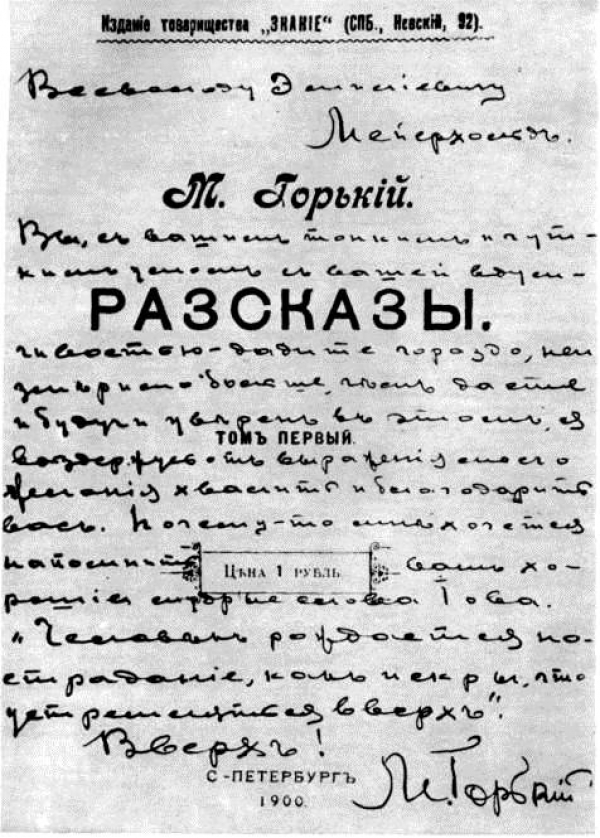 Изданіе товарищества „ЗНАНІЕ“ (СПБ., Невскій, 92).
Всеволоду Эмиліевичу
Мейерхольдъ.
М. Горькій.
Вы, съ вашимъ тонкимъ и чут-
кимъ умомъ, съ вашей вдум-
РАЗСКАЗЫ.
чивостью - дадите гораздо, неи
змѣримо больше, чѣмъ даете
и будучи увѣренъ въ этомъ, я
ТОМЪ ПЕРВЫЙ.
воздержусь отъ выраженія моего
желанія хвалить и благодарить
васъ. Почему-то мнѣ хочется
напомнить вамъ хо-
ЦѢНА 1 РУБЛЬ
рошія мудрые слова Іова.
„Человѣкъ рождается на
страданіе, какъ искры, что
устремляются вверхъ“.
Вверхъ!
С-ПЕТЕРБУРГЪ
М. Горькій
1900.